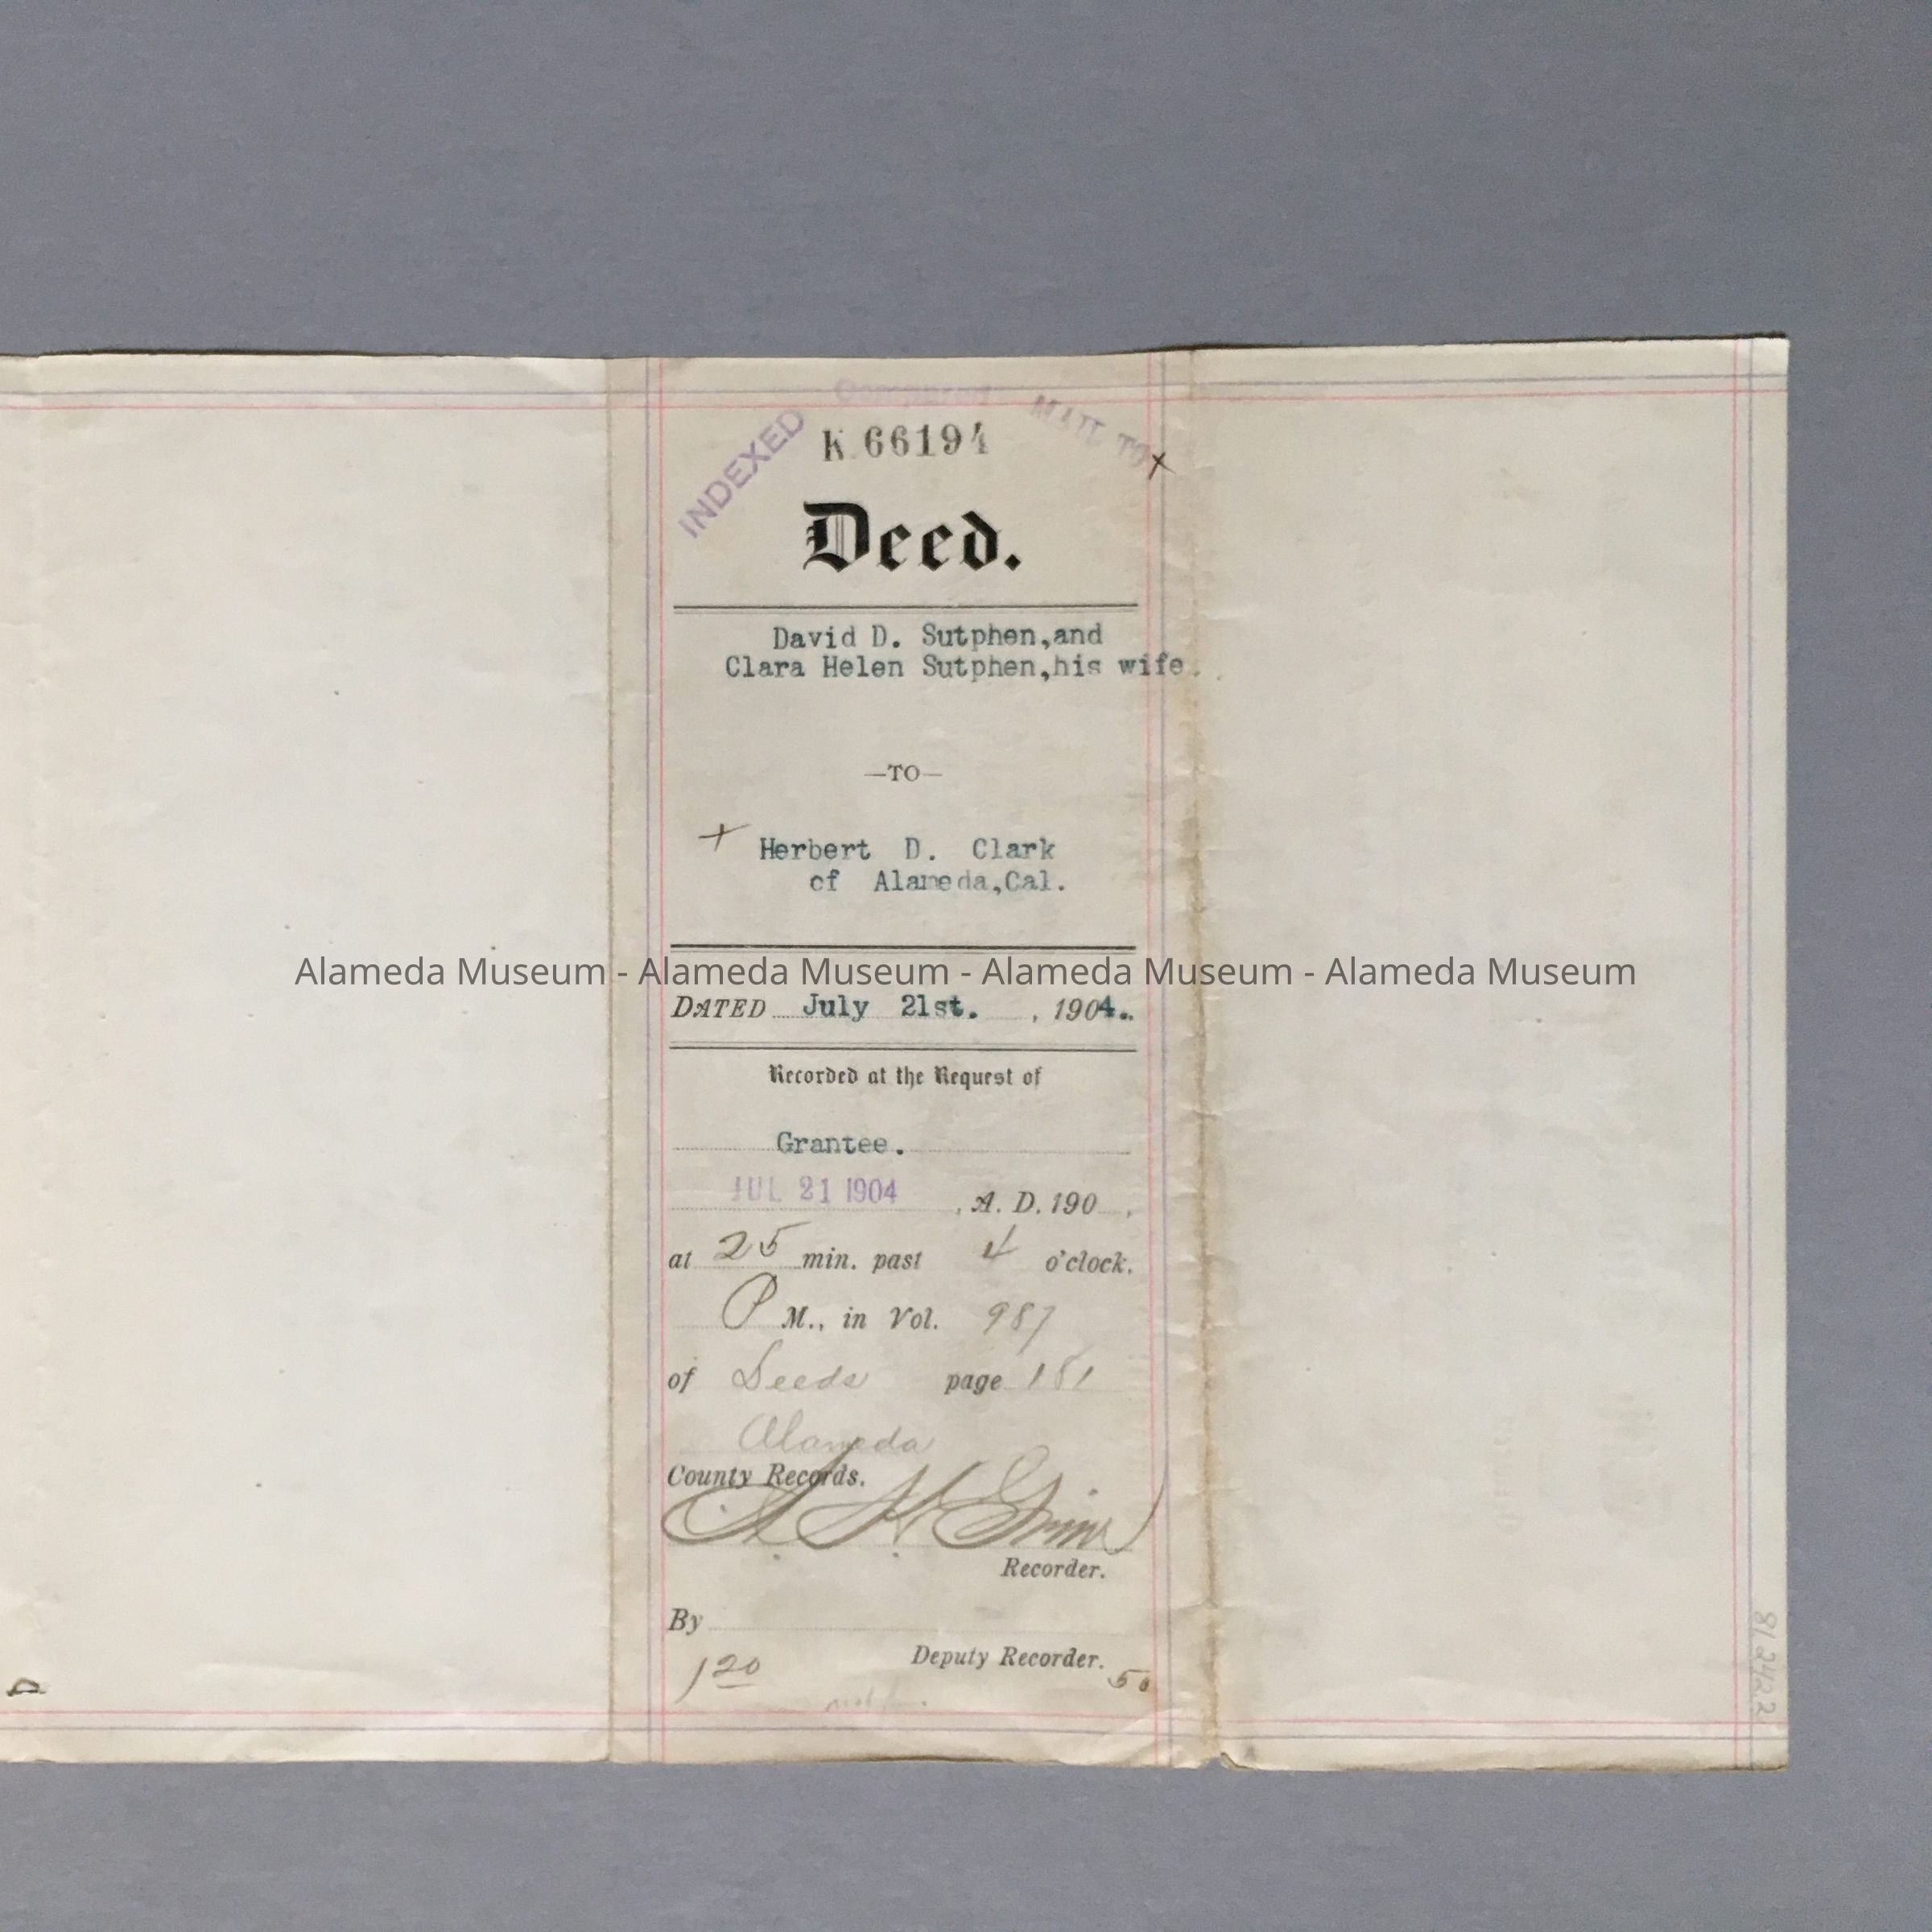 Compared
MAIL TO x
INDEXED
K 66194
Deed.
David D. Sutphen,and
Clara Helen Sutphen,his wife.
—TO—
x Herbert D. Clark
of Alameda,Cal.
Alameda Museum - Alameda Museum - Alameda Museum - Alameda Museum
DATED July 21st. , 1904.
Recorded at the Request of
Grantee.
JUL 21 1904 , A. D. 190 ,
at 25 min. past 4 o'clock.
P M., in Vol. 987
of Deeds page 181
Alameda
County Records.
Recorder.
By
Deputy Recorder.
1 20
50